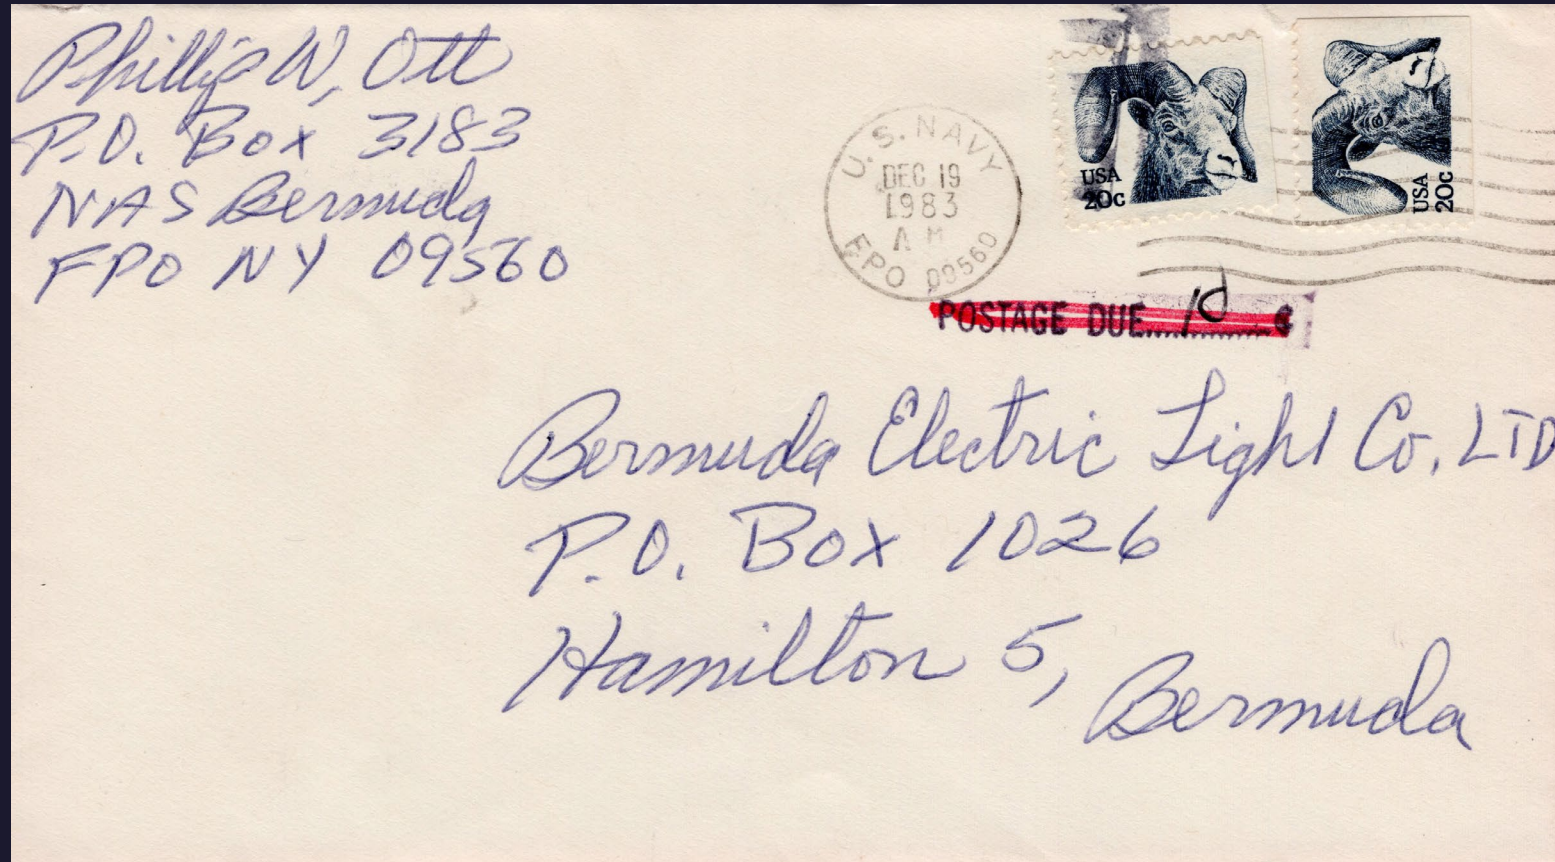 Phillip W, Ott
P.O. Box 3183
NAS Bermuda
FPO NY 09560
U.S. NAVY
DEC 19
1983
AM
FPO 09560
USA
20c
USA
20c
POSTAGE DUE
Bermuda Electric Light Co. LTD
P.O. Box 1026
Hamilton 5, Bermuda